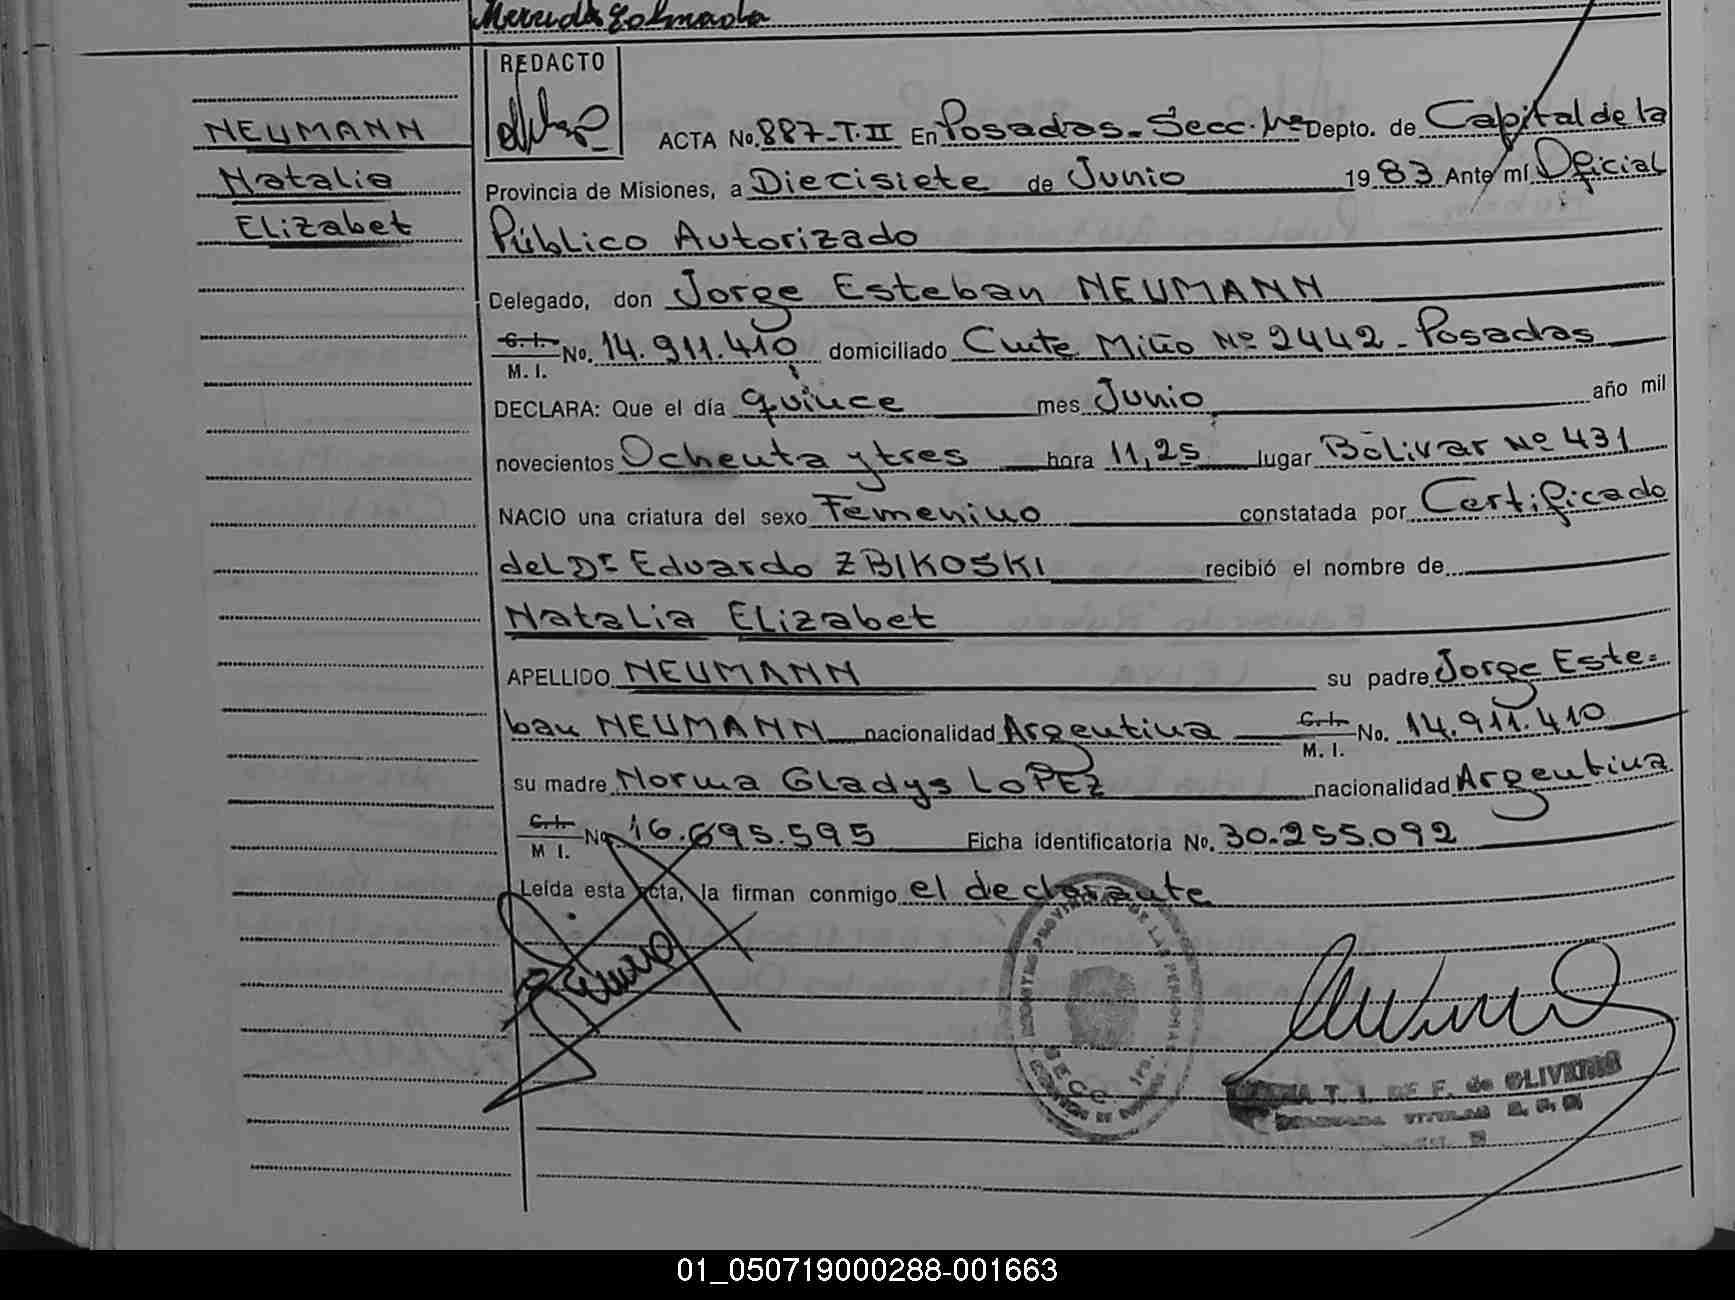 REDACTO
NEUMANN
Natalia
Elizabet
ACTA No. 887-T.II En Posadas - Secc. 1ra Depto. de Capital de la
Provincia de Misiones, a Diecisiete de Junio 1983 Ante mí Oficial
Público Autorizado
Delegado, don Jorge Esteban NEUMANN
C.I. M.I. No. 14.911.410 domiciliado Cnte. Miño Nº 2442 - Posadas
DECLARA: Que el día quince mes Junio año mil
novecientos Ochenta y tres hora 11,25 lugar Bolivar Nº 431
NACIO una criatura del sexo Femenino constatada por Certificado
del Dr Eduardo ZBIKOSKI recibió el nombre de
Natalia Elizabet
APELLIDO NEUMANN su padre Jorge Este=
ban NEUMANN nacionalidad Argentina C.I. M.I. No. 14.911.410
su madre Norma Gladys LOPEZ nacionalidad Argentina
C.I. M I. No. 16.695.595 Ficha identificatoria No. 30.255.092
Leída esta acta, la firman conmigo el declarante
REGISTRO PROVINCIAL DE LAS PERSONAS
SECC. 1ra.
T. I. DE F. de OLIVEIRA
TITULAR
01_050719000288-001663